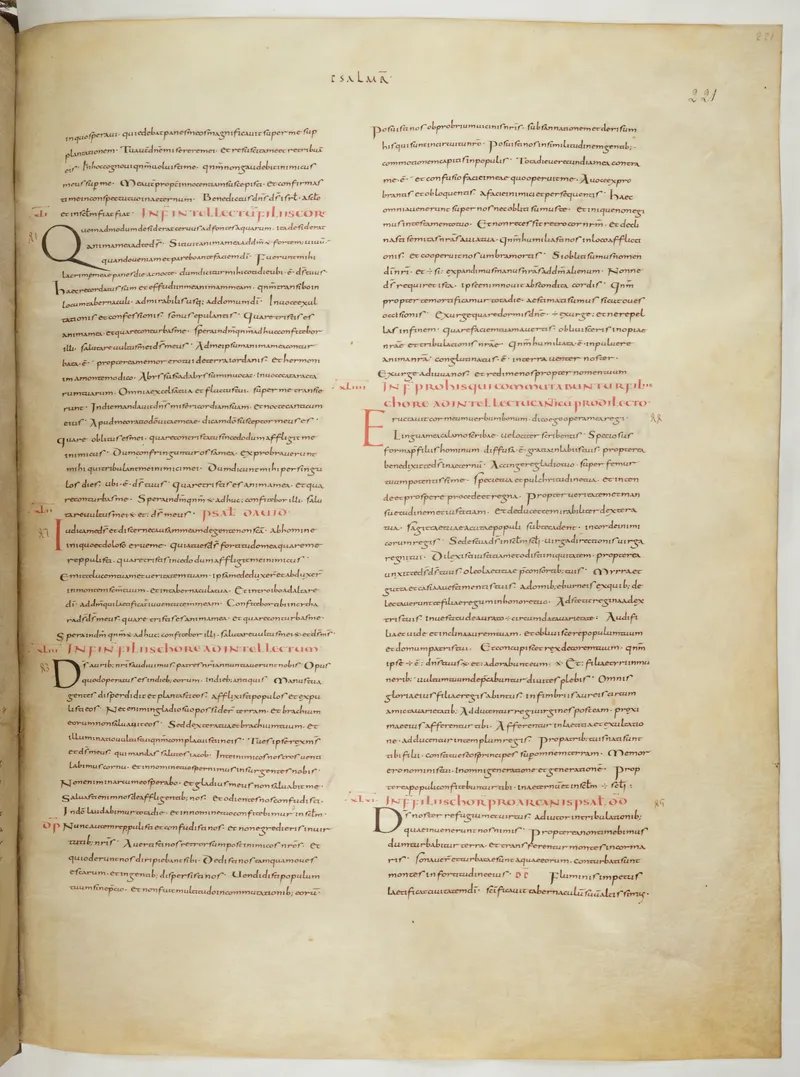 PSALM̄
221
221
inquosperaui · quiedebat panes meos magnificauit super me sup
plantationem · Tu autē dn̄e miserere mei · Et resuscita me et retribuā
eis · Inhoc cognoui qnm̄ uoluisti me · qnm̄ non gaudebit inimicus
meus sup me · Me autē ppt̄ innocentiam suscepisti · Et confirmasti
me inconspectu tuo inaeternum · Benedictus dn̄s dſ isrl̄ · a sclo
·xli· et in sclm̄ fiat fiat · INFINTELLECTŪ FILIIS CORE
Quemadmodum desiderat ceruus ad fontes aquarum · ita desiderat
anima mea adte dſ · Sitiuit anima mea addm̄ fortem uiuū ·
quando ueniam et parebo ante faciem dī · Fuerunt mihi
lacrimae meae panes die ac nocte · dum dicitur mihi cotidie ubi · ē · dſ tuus
haec recordatus sum et effudi in me animam meam · qnm̄ transibo in
locum tabernaculi · admirabilis usq; addomum dī · Inuoce exul
tationis et confessionis · sonus epulantis · Quare tristis es
anima mea · et quare conturbas me · spera indm̄ qnm̄ adhuc confitebor
illi · salutare uultus mei et dſ meus · Ad me ipsum anima mea contur
bata · ē · propterea memor ero tui deterra iordanis · Et hermoni
im amonte modico · Abyssus ad abyssum inuocat · Inuoce cataracta
rum tuarum · Omnia excelsa tua et fluctus tui · super me transie
runt · Indie mandauit dn̄s misericordiam suam · et nocte canticum
eius · Apud me oratio dō uitae meae · dicam dō susceptor meus es ·
quare oblitus es mei · quare contristatus incedo dum affligit me
inimicus · Dum confringuntur ossa mea · exprobrauerunt
mihi qui tribulant me inimici mei · Dum dicunt mihi per singu
los dies · ubi · ē · dſ tuus · Quare tristis es anima mea · et qua
re conturbas me · Spera indm̄ qnm̄ adhuc confitebor illi · salu
·xlii· tare uultus mei et dſ meus · PSAL DAUID
Iudica me dſ et discerne causam meam degente non scā · abhomine
iniquo et doloso erue me · Quia tu es dſ fortitudo mea quare me
reppulisti · quare tristis incedo dum affligit me inimicus ·
Emitte lucem tuam et ueritatem tuam · ipsa me deduxer̄ et abduxer̄
inmontem scm̄ tuum · et intabernacula tua · Et introibo ad altare
dī · addm̄ qui laetificat iuuentutem meam · Confitebor tibi incitha
ra dſ dſ meus · quare tristis es anima mea · et quare conturbas me ·
Spera indm̄ qnm̄ adhuc confitebor illi · salutare uultus mei et dſ mſ
·xliii· INFIN FILIIS CHORE AD INTELLECTUM
Dſ auribus nr̄is audiuimus · patres nr̄i annuntiauerunt nobis · Opus
quod operatus es indieb; eorum · indieb; antiquis · Manus tua
gentes disperdidit et plantasti eos · afflixisti populos et expu
listi eos · Nec enim ingladio suo possider̄ terram · et brachium
eorum non saluauit eos · Sed dextera tua et brachium tuum · Et
illuminatio uultus tui qnm̄ conplacuisti ineis · Tu es ipse rex m̄s
et dſ meus · qui mandas salutes iacob · Inte inimicos nr̄os uenti
labimus cornu · et innomine tuo spernimus insurgentes nobis ·
Non enim in arcu meo sperabo · et gladius meus non saluabit me ·
Saluasti enim nos deaffligentib; nos · et odientes nos confudisti ·
Indō laudabimur tota die · et innomine tuo confitebimur insclm̄ ·
DP Nunc autem reppulisti et confudisti nos · et non egredieris inuir
tutib; nr̄is · Auertisti nos retrorsum post inimicos nr̄os · Et
qui oderunt nos diripiebant sibi · Dedisti nos tamquam oues
escarum · et ingentib; dispersisti nos · Uendidisti populum
tuum sine pretio · et non fuit multitudo incommutationib; eorū ·
Posuisti nos obprobrium uicinis nr̄is · subsannationem et derisum
his qui sunt incircuitu nr̄o · Posuisti nos insimilitudinem gentib; ·
commotionem capitis inpopulis · Tota die uerecundia mea contra
me · ē · et confusio faciei meae quo operuit me · A uoce expro
brantis et obloquentis · a facie inimici et persequentis · Haec
omnia uenerunt super nos nec obliti sumus te · et inique non egi
mus intestamento tuo · Et non recessit retro cor nr̄m · et decli
nasti semitas nr̄as a uia tua · qnm̄ humiliasti nos inloco afflicti
onis · et cooperuit nos umbra mortis · Si obliti sumus nomen
dī nr̄i · et si expandimus manus nr̄as addm̄ alienum · Nonne
dſ requiret ista · ipse enim nouit abscondita cordis · Qnm̄
propter te mortificamur tota die · aestimati sumus sicut oues
occisionis · Exurge quare dormis dn̄e exurge · et ne repel
las infinem · quare faciem tuam auertis · obliuisceris inopiae
nr̄ae et tribulationis nr̄ae · Qnm̄ humiliata · ē · inpuluere
anima nr̄a · conglutinatus · ē · interra uenter noster ·
Exurge adiuua nos · et redime nos propter nomen tuum
·xliiii· INF PROHIS QUI COMMUTABUNTUR FILIIS
CHORE AD INTELLECTŪ CANTICŪ PRO DILECTO
Eructauit cor meum uerbum bonum · dico ego opera mea regi
Lingua mea calamos scribae · uelociter scribentis · Speciosus
forma prae filiis hominum · diffusa · ē · gratia inlabiis tuis · propterea
benedixit te dſ inaeternū · Accingere gladio tuo · super femur
tuum potentissime · specie tua et pulchritudine tua · et inten
de et prospere procede et regna · Propter ueritatem et man
suetudinem et iustitiam · Et deducet te mirabiliter dextera
tua · sagittae tuae acutae populi subte cadent · incorde inimi
corum regis · Sedes tua dſ insclm̄ scli; uirga directionis uirga
regni tui · Dilexisti iustitiam et odisti iniquitatem · propterea
unxit te dſ dſ tuus oleo laetitiae p̄ consortib; tuis · Myrra et
gutta et casia auestimentis tuis · adomib; eburneis exquib; de
lectauerunt te filiae regum inhonore tuo · Adstitit regina adex
tris tuis · inuestitu deaurato circumdata uarietate · Audi fi
lia et uide et inclina aurem tuam · et obliuiscere populum tuum
et domum patris tui · Et concupiscet rex decorem tuum · qnm̄
ipse · ē · dn̄s tuus et adorabunt eum · Et filiae tyri inmu
nerib; · uultum tuum depcabuntur diuites plebis · Omnis
gloria eius filiae regis abintus · infimbriis aureis circum
amicta uarietatib; · Adducentur regi uirgines post eam · proxi
mae eius afferentur tibi · Afferentur inlaetitia et exultatio
ne · adducentur intemplum regis · Propatrib; tuis nati sunt
tibi filii · constitues eos principes sup omnem terram · Memor
ero nominis tui · Inomni generatione et generationē · Prop
terea populi confitebuntur tibi · inaeternū et insclm̄ scli;
·xlv· INF FILIIS CHOR PROARCANIS PSAL DD
Dſ noster refugium et uirtus · adiutor intribulationib;
quae inuenerunt nos nimis · Propterea non timebimus
dum turbabitur terra · et transferentur montes incor ma
ris · sonauer̄ et turbatae sunt aquae eorum · conturbati sunt
montes infortitudine eius · DP Fluminis impetus
laetificat ciuitatem dī · scificauit tabernaculū suū altissimus ·